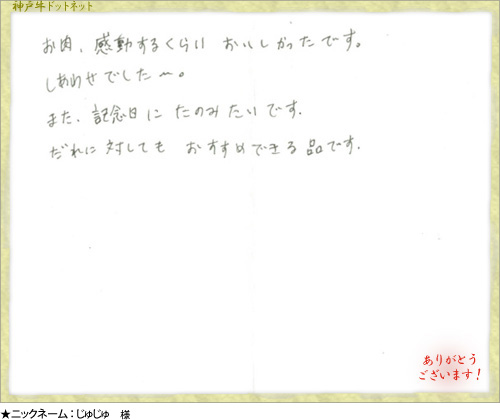 神戸牛ドットネット
お肉、感動するくらい おいしかったです。
しあわせでした〜。
また、記念日に たのみたいです.
だれに対しても おすすめできる品です.
ありがとう
ございます!
★ニックネーム:じゅじゅ 様